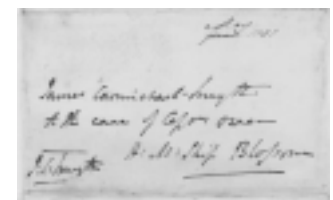 James Carmichael-Smyth
to the care of Capt Owen
H. M. Ship Blossom
J. C. Smyth